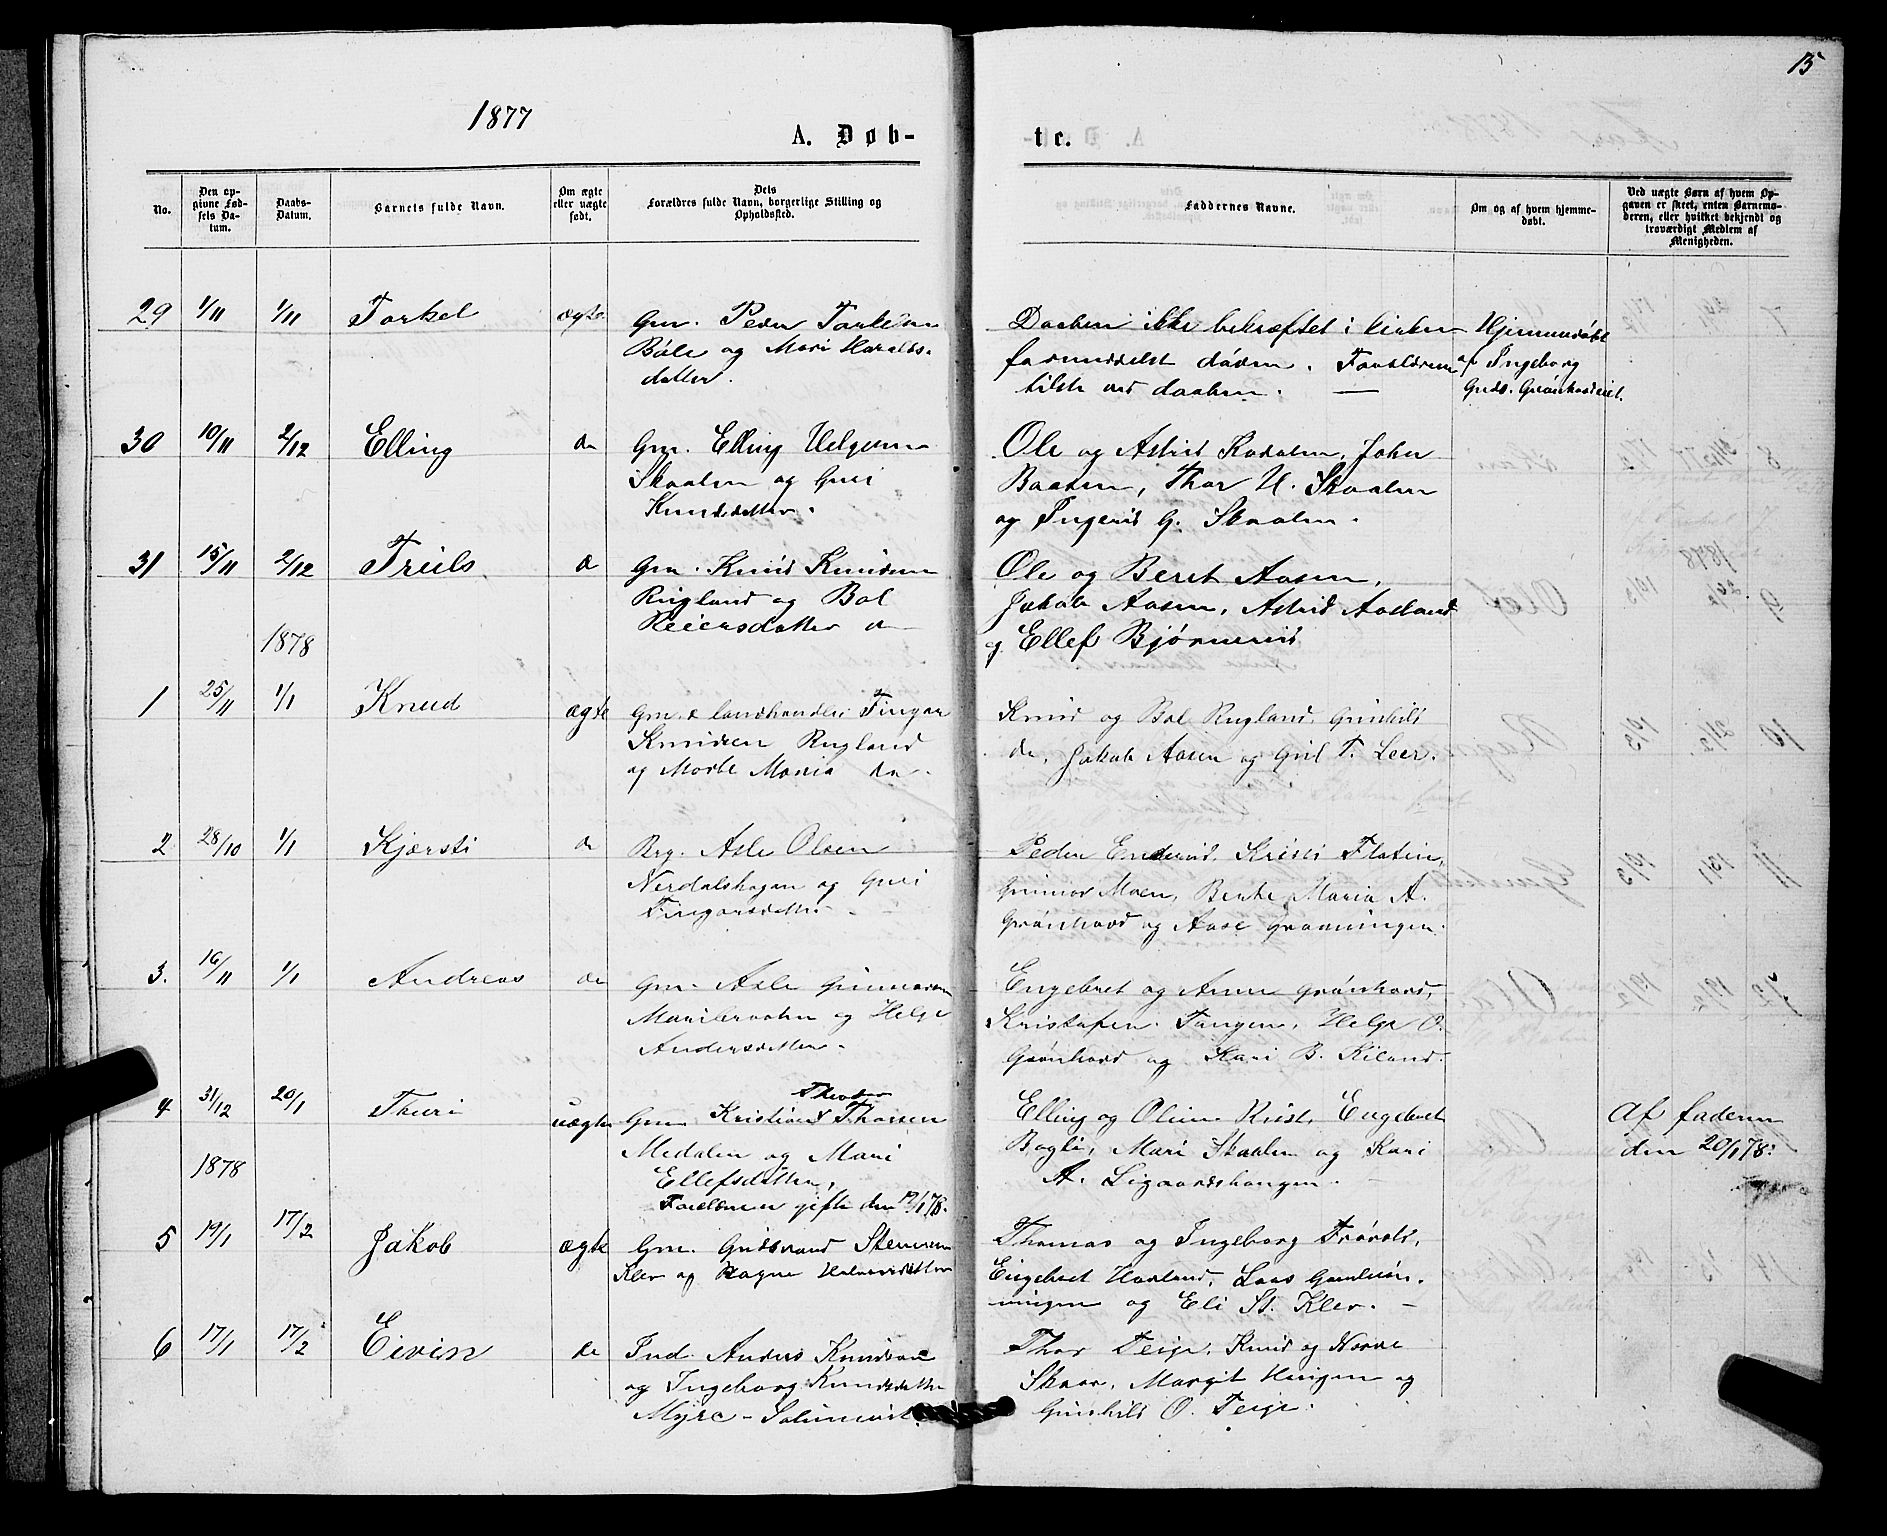 15
1877
A. Døb-
te.
No.
Den op-
givne Fød-
sels Da-
tum.
Daabs-
Datum.
Barnets fulde Navn.
Om ægte
eller uægte
født.
Dets
Forældres fulde Navn, borgerlige Stilling og
Opholdssted.
Faddernes Navne.
Om og af hvem hjemme-
døbt.
Ved uægte Børn af hvem Op-
gaven er skeet, enten Barnemo-
deren, eller hvilket bekjendt og
troværdigt Medlem af
Menigheden.
29 1/11 1/11 Torkel ægte
Gm. Peder Torkelsen
Bøle og Mari Haralds-
datter.
Daaben ikke bekræftet i kirken
formedelst døden. Forældrene
tilste ved daaben. —
Hjemmedøbt
af Ingeborg
Guds. Grønhovdeiet.
30 10/11 2/12 Elling do
Gm. Elling Helgesen
Skaalen og Guri
Knudsdatter.
Ole og Astrid Rodalen, John
Baaten, Thor H. Skaalen
og Ingerid G. Skaalen.
31 15/11 2/12 Truls do
Gm. Knud Knudsen
Rugland og Bol
Reiersdatter do
Ole og Beret Aasen,
Jakob Aasen, Astrid Aasland
og Ellef Bjørnerud
1878
1 25/11 1/1 Knud ægte
Gm. & landhandler Fingar
Knudsen Rugland
og Marte Maria do.
Knud og Bol Rugland, Gunhild
do, Jakob Aasen og Guil T. Leer.
2 28/10 1/1 Kjersti do
Brg. Asle Olsen
Nerdalshagen og Guri
Fingarsdatter.
Peder Enderud, Kristi Flaten,
Gunnor Moen, Berthe Maria A.
Grønhovd og Aase Gromningen.
3. 16/11 1/1 Andreas do
Gm. Asle Gunnarsen
og Helge
Andersdatter.
Engebret og Anne Grønhovd,
Kristofer Tangen, Helge O.
Grønhovd og Kari B. Kiland.
4 31/12 20/1 Thuri uægte
Gm. Kristian Thorsen
Medalen og Mari
Ellefsdatter,
Forældrene gifte den 19/1 78.
Elling og Olina Rust, Engebret
Bagli, Mari Skaalen og Kari
A. Ligaardshaugen.
Af faderen
den 20/1 78.
1878
5 19/1 17/2 Jakob ægte
Gm. Gudbrand Stenersen
Klev og Ragne Halvorsdatter
Thomas og Ingeborg Frøvold,
Engebret Havland, Lars Gamlemøn-
ningen og Eli St. Klev. —
6 17/1 17/2 Eivin do
Ind. Anders Knudsen
og Ingeborg Knudsdatter
Myre - Solumeiet.
Thor Teige, Knud og Norve
Skaar, Margit Haugen og
Gunhild O. Teige.